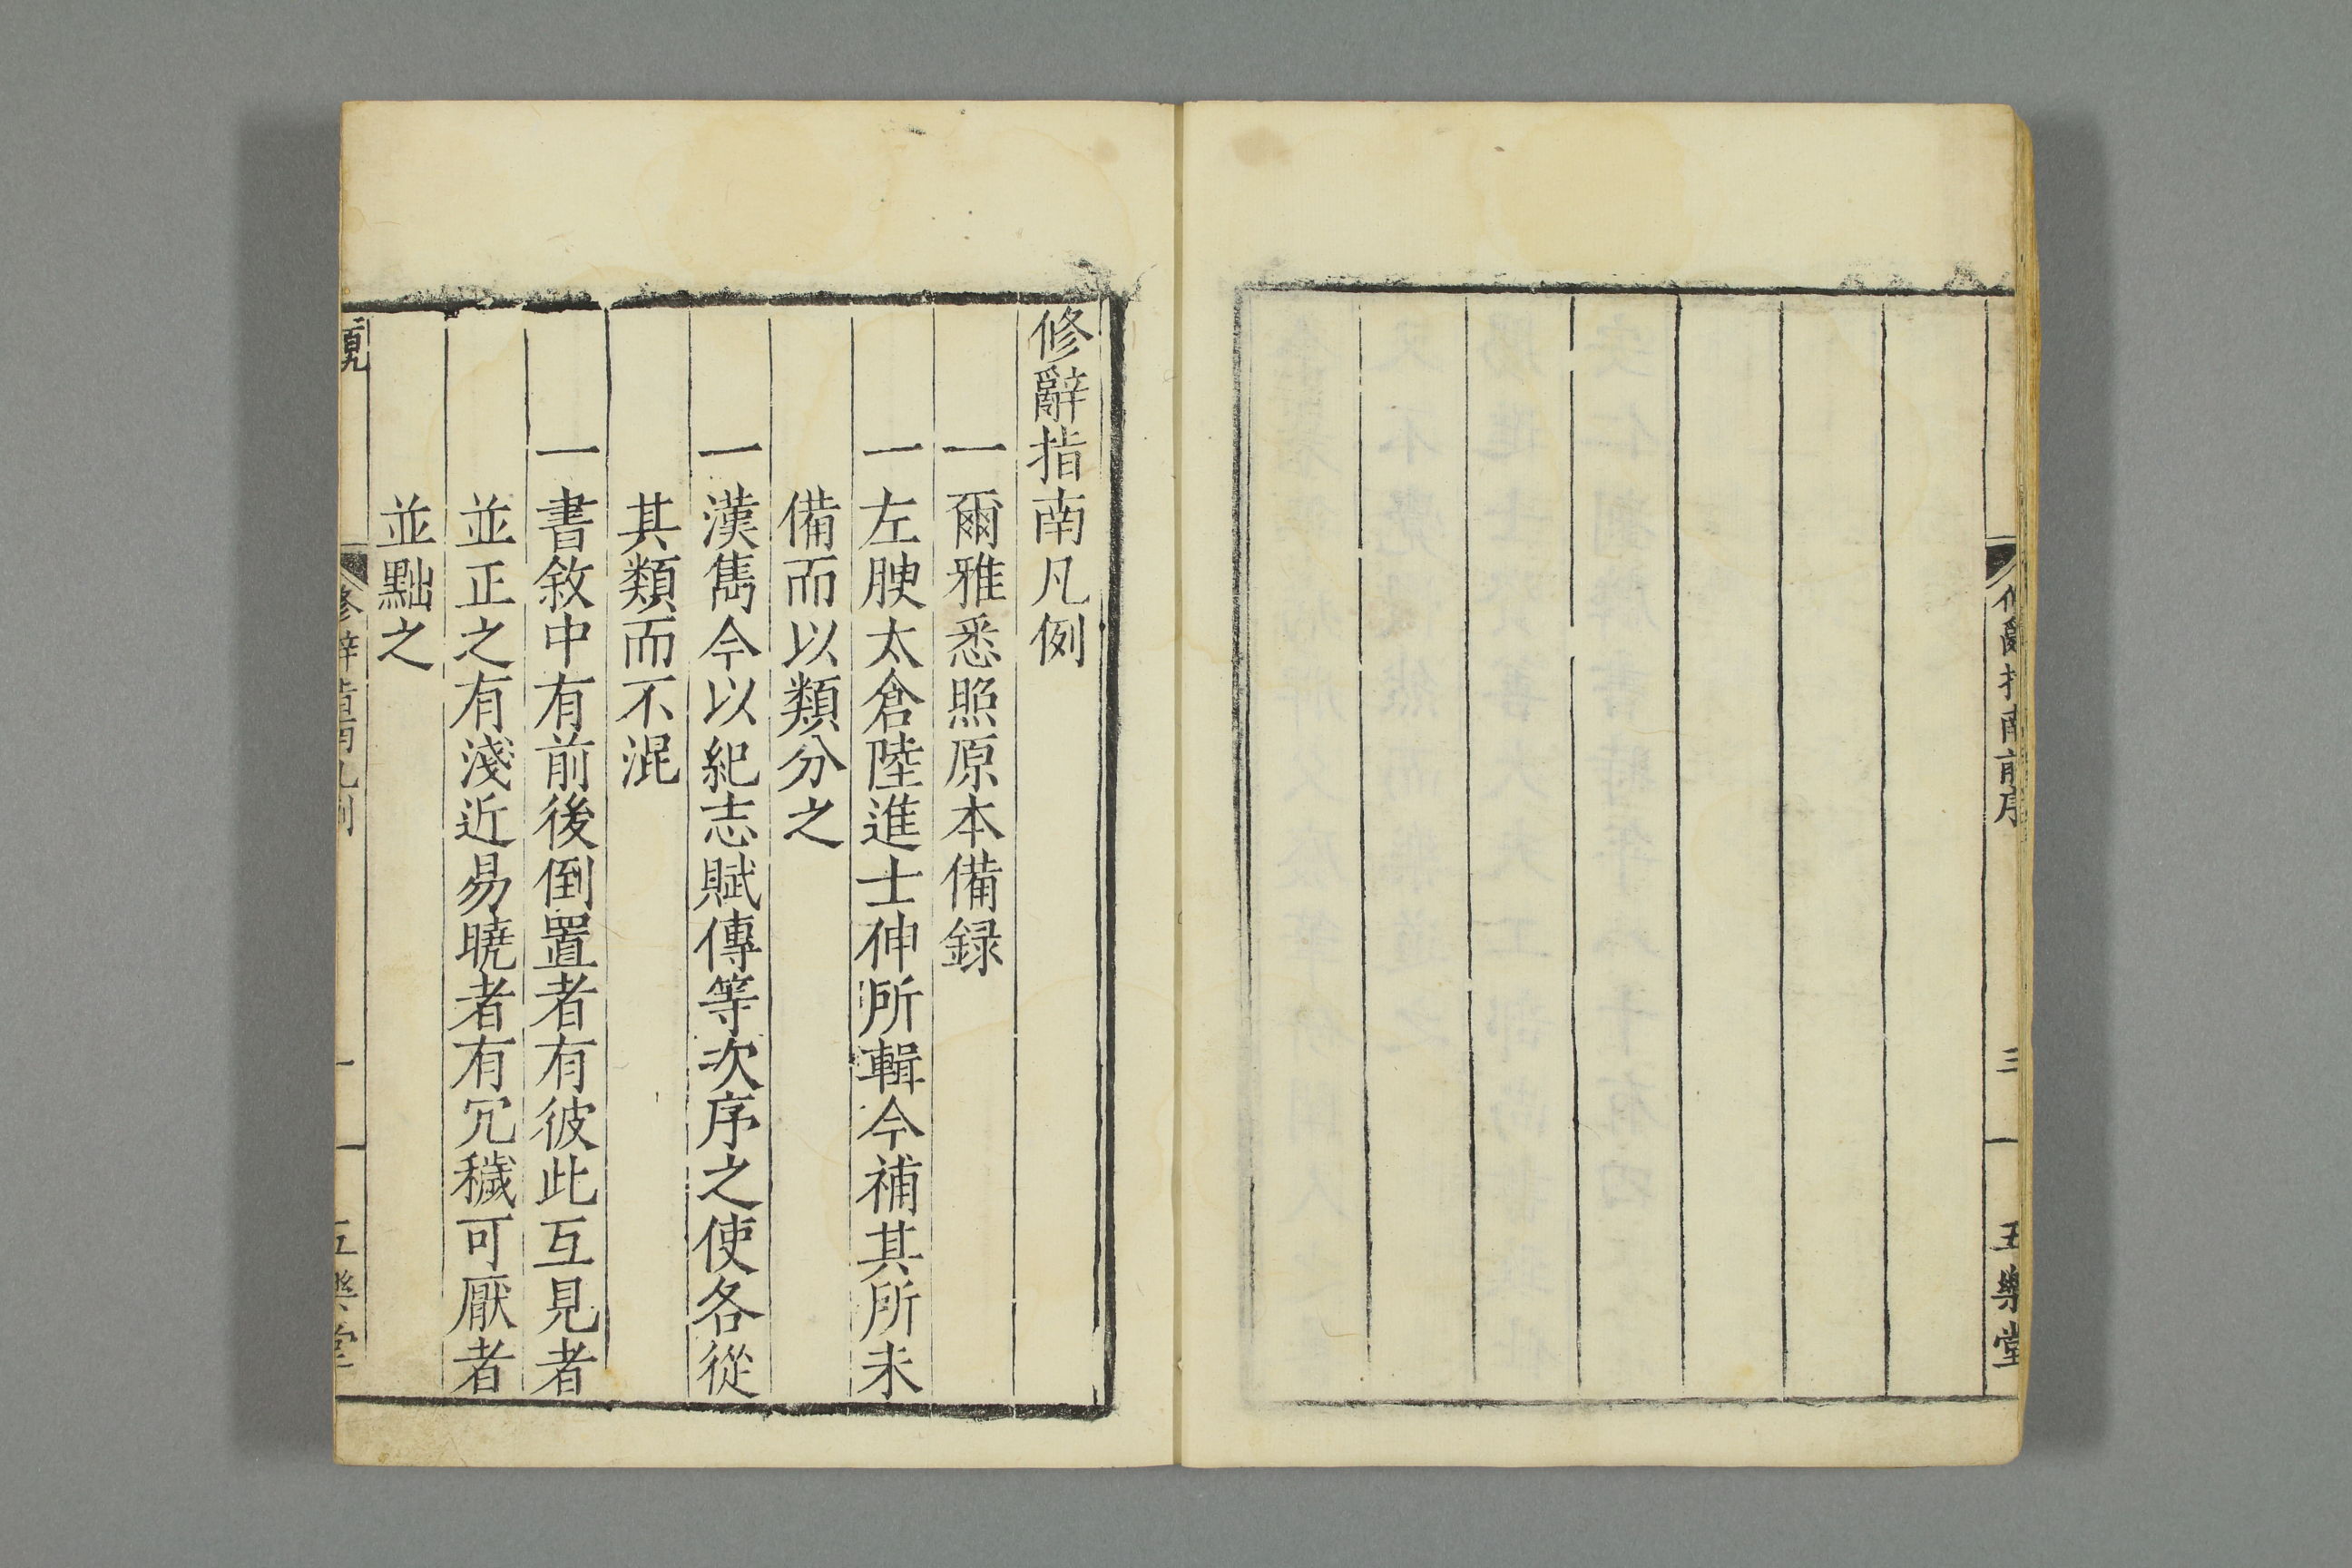 修辭指南前序
三
五樂堂
修辭指南凡例
一爾雅悉照原本備録
一左腴太倉陸進士伸所輯今補其所未
備而以類分之
一漢雋今以紀志賦傳等次序之使各從
其類而不混
一書敘中有前後倒置者有彼此互見者
並正之有淺近易曉者有冗穢可厭者
並黜之
修辭指南凡例
一
五樂堂